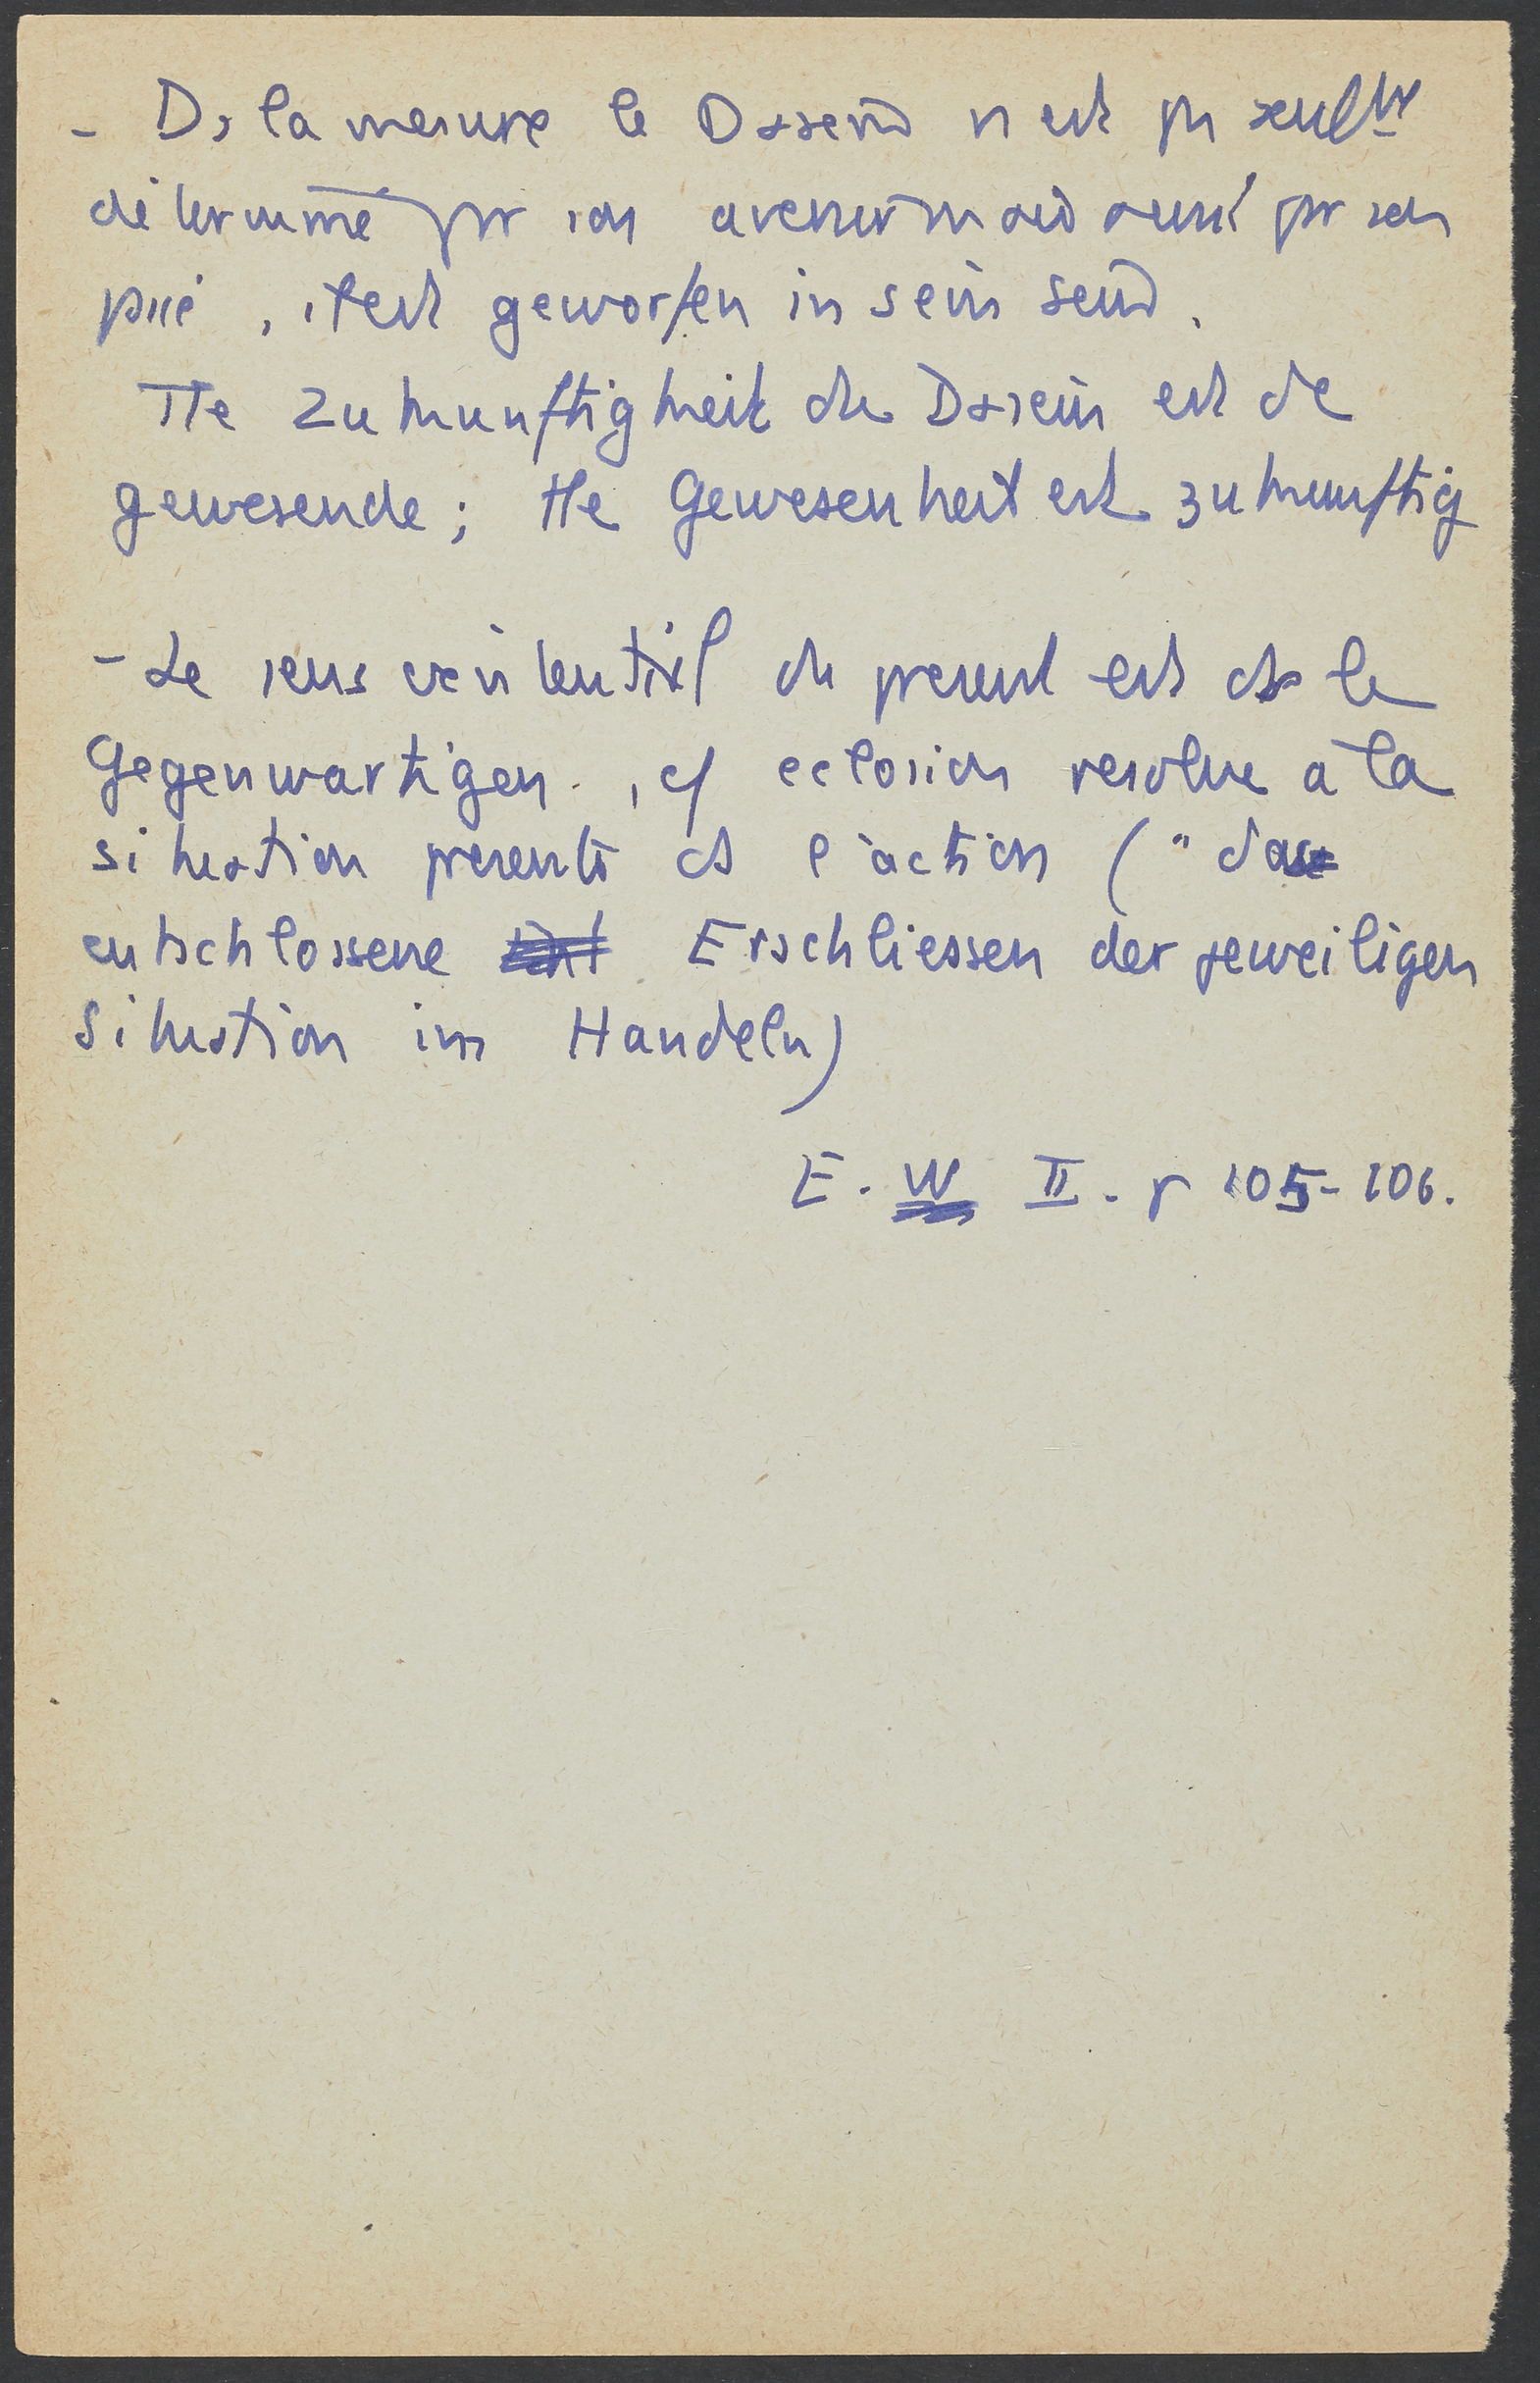 - Ds la mesure le Dasein n'est pas seulmt
déterminé par son avenir mais aussi par son
passé, il est geworfen in sein sein.
Tte Zukunftigkeit du Dasein est de
gewesende ; tte Gewesenheit est zukunftig
- Le sens existential du present est ds le
Gegenwartigen. , cf eclosion resolue a la
situation presente ds l'action ( " das
entschlossene Erschliessen der jeweiligen
Situation im Handeln)
E. W II. p 105-106.